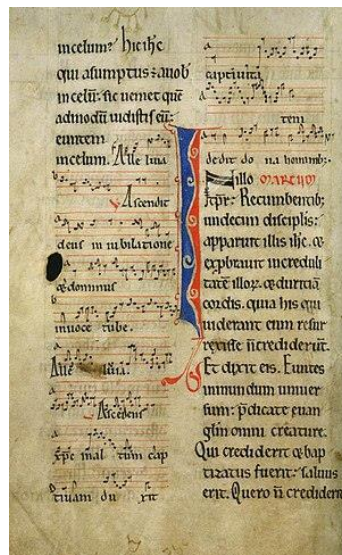 incelum? hic ihc
qui asumptus ÷ auob
incelū: sic ueniet quē
admodū uidistis eū
euntem
incelum. Alle luia
Ascendit
deus in iubilatione
& dominus
inuoce tube.
Alle luia.
Ascendens
xp̄c in al tum cap
tiuam du xit
captiuita
tem
dedit do na hominib;
Illo MARCUM
tp̄r: Recumbentib;
undecim discipulis:
apparuit illis ihc. &
exprobrauit increduli
tatē illoꝝ. & duritiā
cordis. quia his qui
uiderant eum resur
rexisse n̄ crediderūt.
Et dixit eis. Euntes
inmundum uniuer
sum: p̄dicate euan
glm omni creature.
Qui crediderit & bap
tizatus fuerit: saluus
erit. Qui uero n̄ crediderit